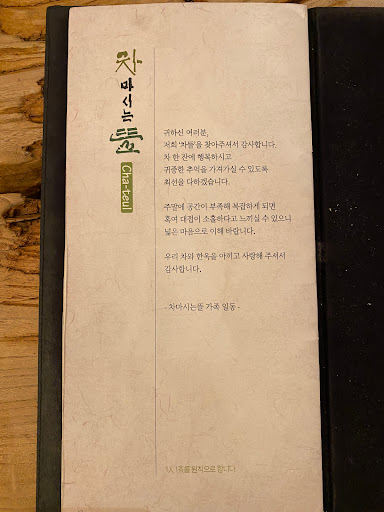 차
마
시
는
뜰
Cha-teul
귀하신 여러분,
저희 '차뜰'을 찾아주셔서 감사합니다.
차 한 잔에 행복하시고
귀중한 추억을 가져가실 수 있도록
최선을 다하겠습니다.
주말에 공간이 부족해 복잡하게 되면
혹여 대접이 소홀하다고 느끼실 수 있으니
넓은 마음으로 이해 바랍니다.
우리 차와 한옥을 아끼고 사랑해 주셔서
감사합니다.
- 차마시는뜰 가족 일동 -
1人 1차를 원칙으로 합니다